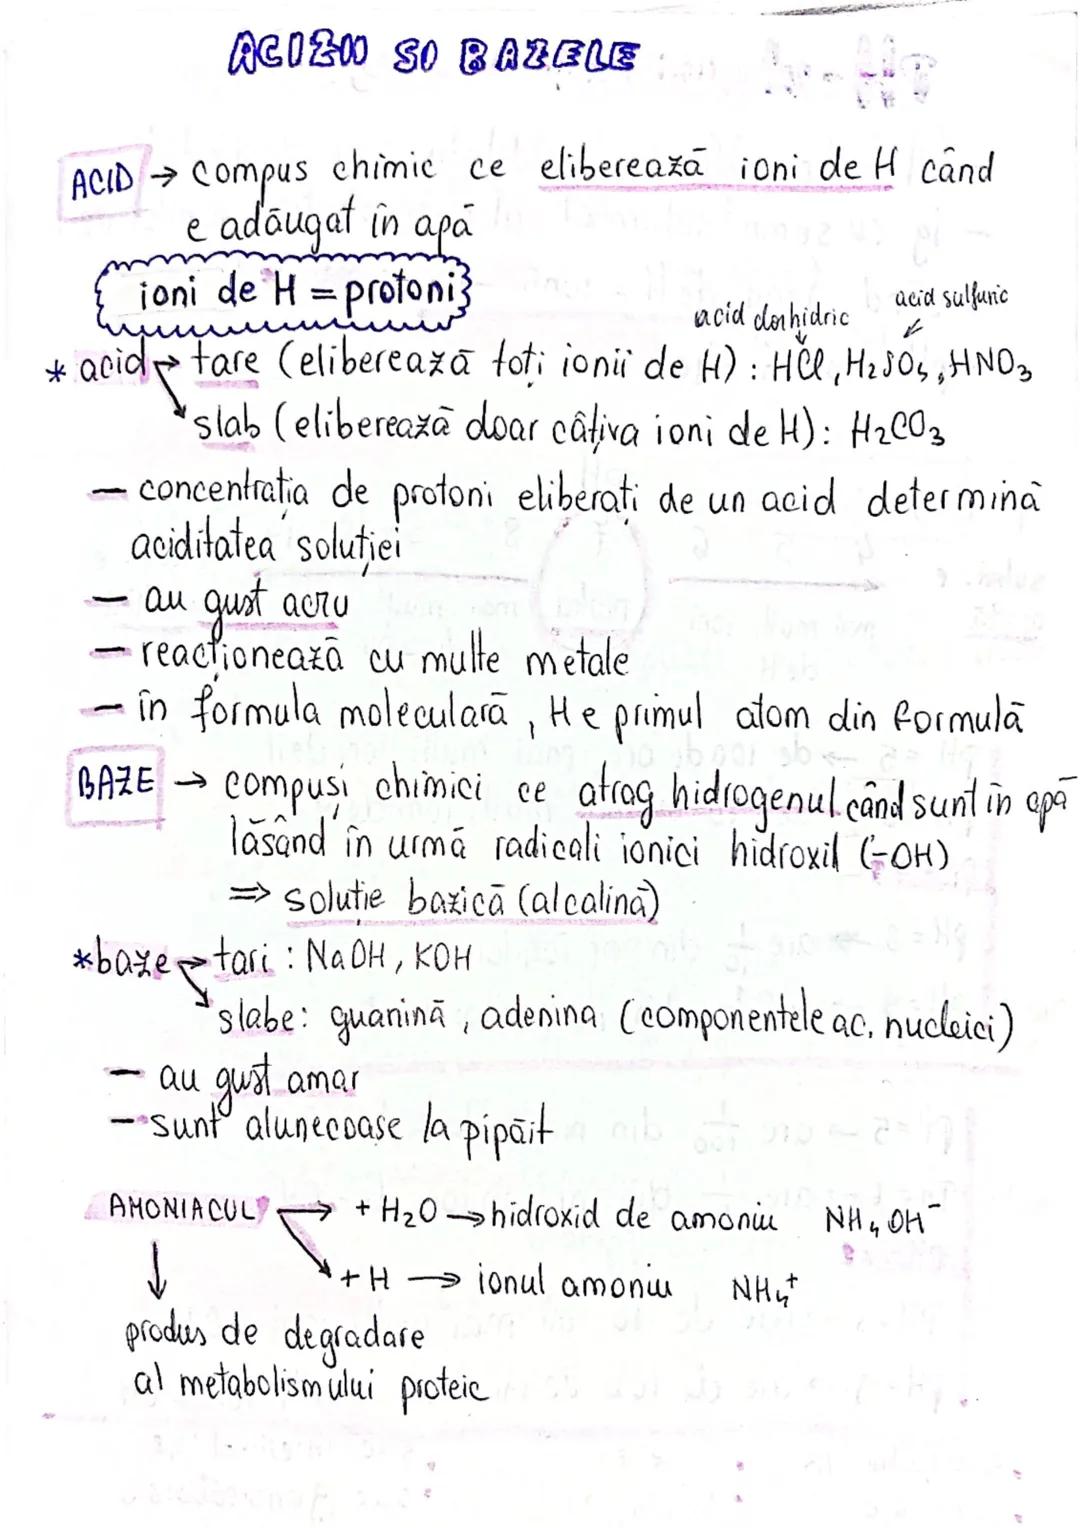 ACIZII SI BAZELE
ACID → compus chimic ce eliberează ioni de H când
e adăugat în apă
ioni de H = protoni
acid clorhidric
acid sulfuric
* acid → tare (eliberează toți ionii de H) : HCl, H2SO4, HNO3
slab (eliberează doar câțiva ioni de H): H2CO3
- concentrația de protoni eliberați de un acid determină
aciditatea soluției
- au gust acru
- reacționează cu multe metale
- în formula moleculară, H e primul atom din formulă
BAZE → compuși chimici ce atrag hidrogenul când sunt în apă
lăsând în urmă radicali ionici hidroxil (-OH)
=> soluție bazică (alcalină)
*baze → tari : NaOH, KOH
slabe: guanină, adenina (componentele ac. nucleici)
- au gust amar
- sunt alunecoase la pipăit
AMONIACUL → + H2O → hidroxid de amoniu NH4OH-
+ H → ionul amoniu NH4+
↓
produs de degradare
al metabolismului proteic